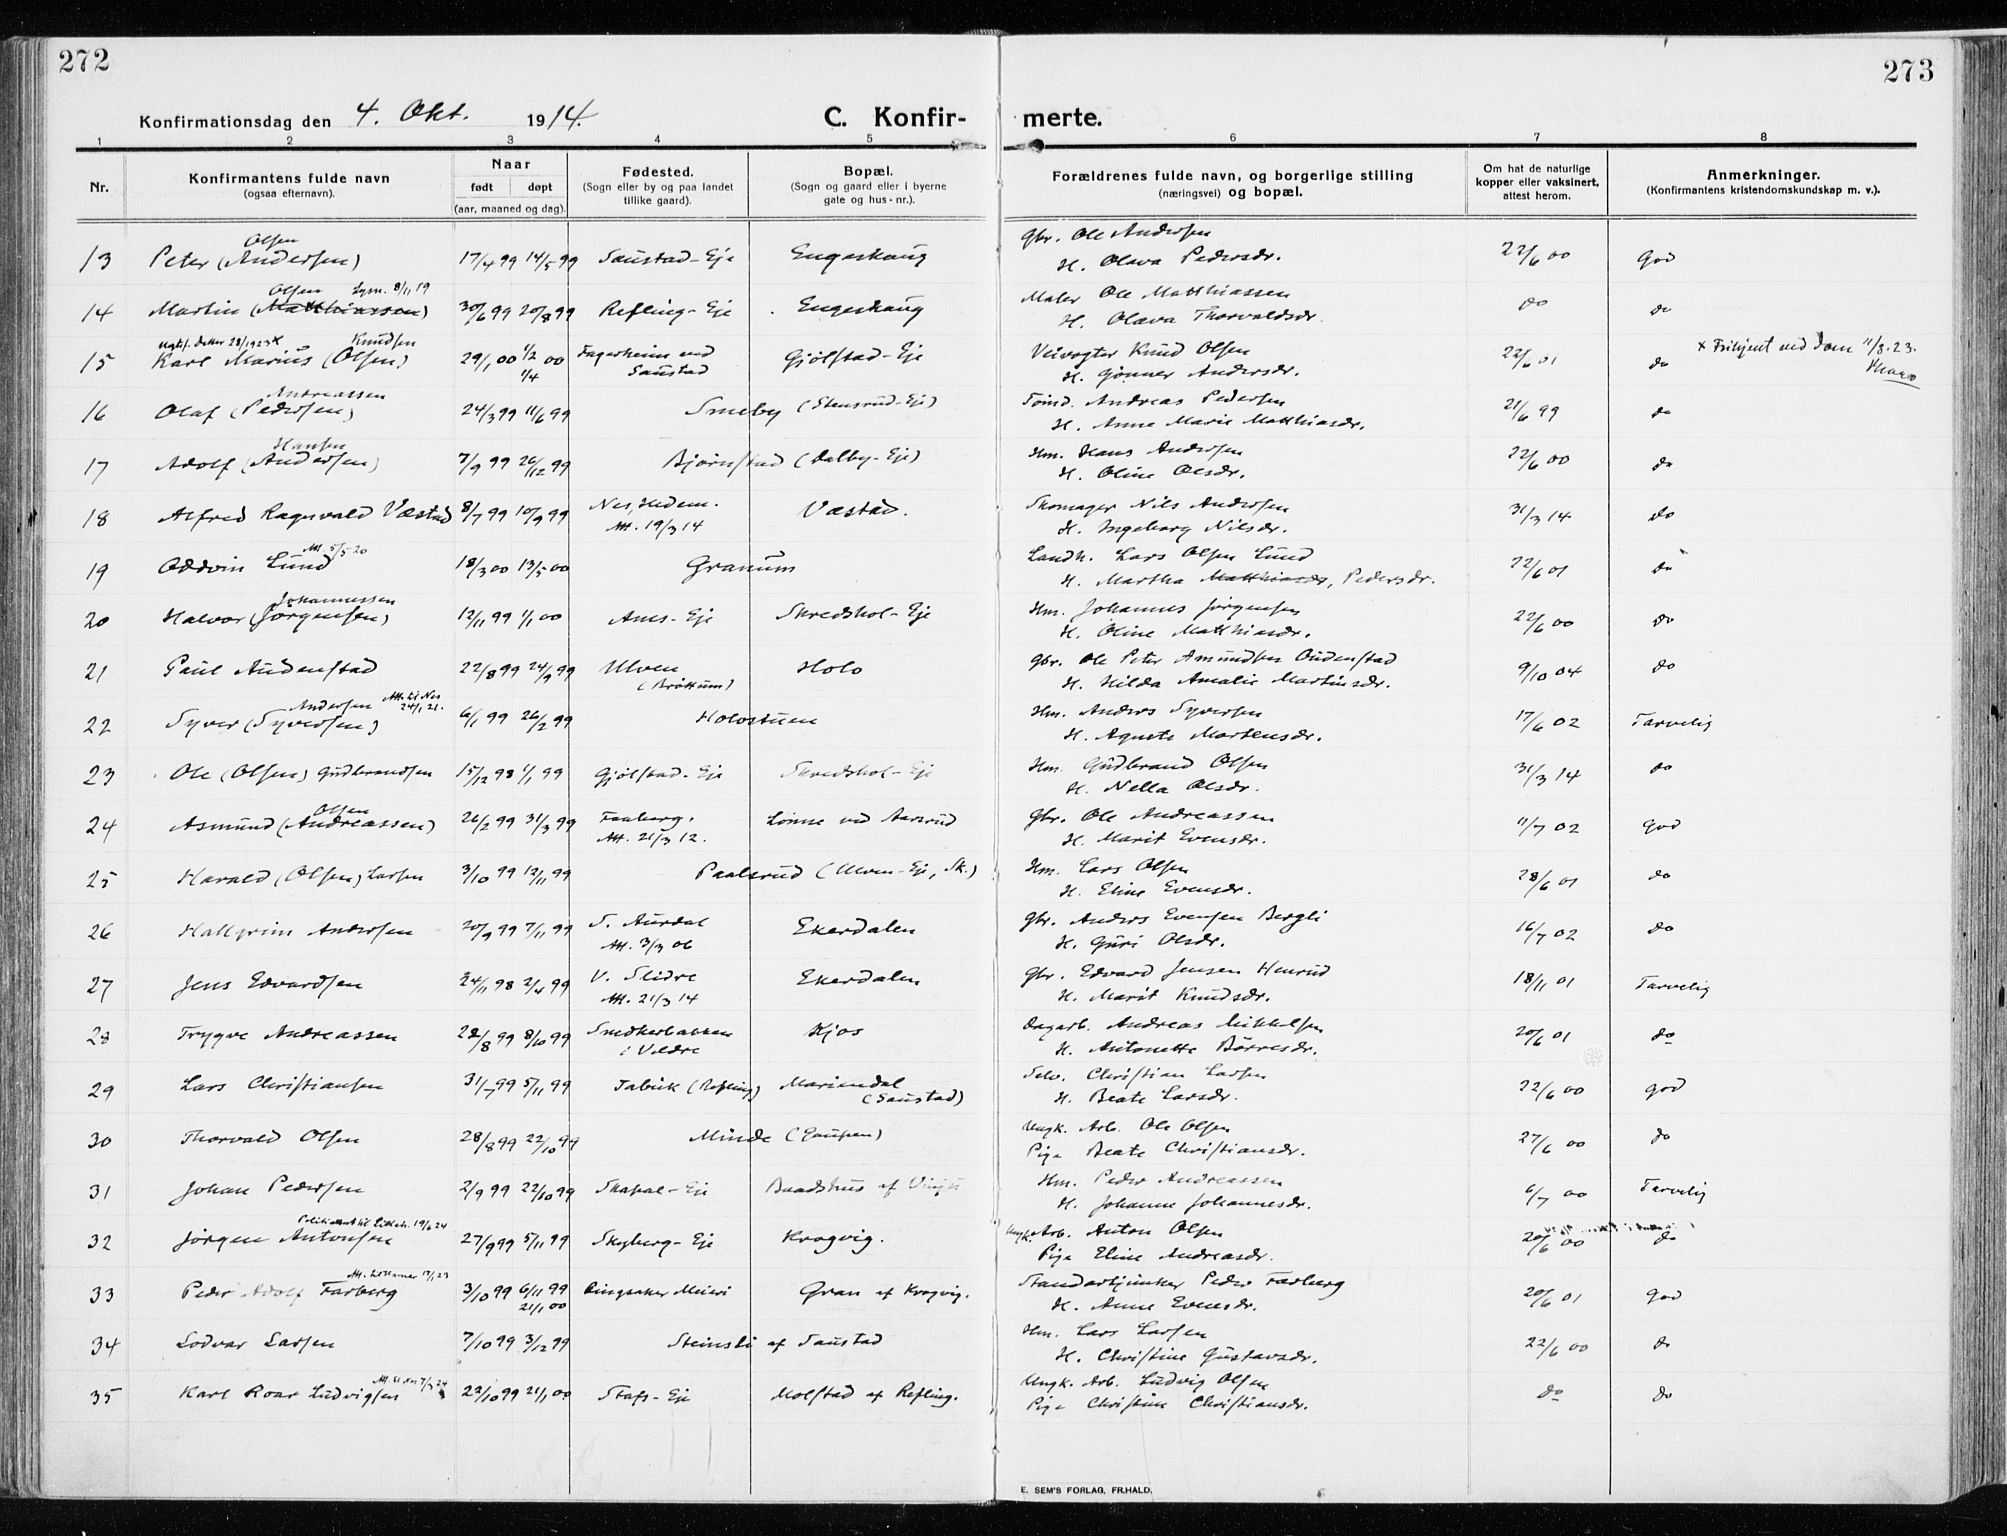 272
273
Konfirmationsdag den 4. Okt. 1914.
C. Konfir-
merte.
1 2 3 4 5 6 7 8
Nr.
Konfirmantens fulde navn
(ogsaa efternavn).
Naar
født døpt
(aar, maaned og dag).
Fødested.
(Sogn eller by og paa landet
tillike gaard).
Bopæl.
(Sogn og gaard eller i byerne
gate og hus-nr.).
Forældrenes fulde navn, og borgerlige stilling
(næringsvei) og bopæl.
Om hat de naturlige
kopper eller vaksinert,
attest herom.
Anmerkninger.
(Konfirmantens kristendomskundskap m. v.).
Olsen
13 Peter (Andersen) 17/4 99 14/5 99 Saustad-Eje Engeshaug Gbr. Ole Andersen 22/6 00 God
H. Olava Pedersdr.
Olsen 8/11 19
14 Martin (Matthiassen) 30/6 99 20/8 99 Refling-Eje Engeshaug Maler Ole Matthiassen do do
H. Olava Thorvaldsdr.
Knudsen
15 Karl Marius (Olsen) 29/1 00 1/2 00 Fagerheim ved Gjølstad-Eje Veivogter Knud Olsen 22/6 01 do x Frikjent ved dom 11/8.23.
1/4 Saustad H. Gønner Andersdr.
Andreassen
16 Olaf (Pedersen) 24/3 99 11/6 99 Smeby (Stensrud-Eje) Andreas Pedersen 21/6 99 do
H. Anne Marie Matthiasdr.
Hansen
17 Adolf (Andersen) 7/9 99 26/12 99 Bjørnstad (Dalby-Eje) Hm. Hans Andersen 22/6 00 do
H. Oline Olsdr.
18 Alfred Ragnvald Væstad 8/7 99 10/9 99 Nes, Hedem. Væstad. Skomager Nils Andersen 31/3 14 do
Att. 19/3 14 H. Ingeborg Nilsdr.
Att. 5/5 20
19 Oddvin Lund 18/3 00 13/5 00 Granum Landh. Lars Olsen Lund 22/6 01 do
H. Martha Matthiasdr, Pedersdr.
Johannessen
20 Halvor (Jørgensen) 12/11 99 1/1 00 Ams-Eje Skredshol-Eje Hm. Johannes Jørgensen 22/6 00 do
H. Oline Matthiasdr.
21 Paul Audenstad 22/8 99 24/9 99 Ulven Holo Gbr. Ole Peter Amundsen Oudenstad 9/10 04 do
(Brøttum) H. Hilda Amalie Martinsdr.
Andersen Att. til Nes
24/1 21.
22 Syver (Syversen) 6/1 99 26/2 99 Holostuen Hm. Anders Syversen 17/6 02 Tarvelig
H. Agnete Mortensdr.
23 Ole (Olsen) Gudbrandsen 15/12 98 1/1 99 Gjølstad-Eje Skredshol-Eje Hm. Gudbrand Olsen 31/3 14 do
H. Nella Olsdr.
Olsen
24 Asmund (Andreassen) 26/2 99 31/3 99 Faaberg. Lønne ved Aarsrud Gbr. Ole Andreassen 11/7 02 god
Att. 21/3 12. H. Marit Evensdr.
25 Harald (Olsen) Larsen 3/10 99 12/11 99 Paalsrud (Ulven-Eje, Sk.) Hm. Lars Olsen 28/6 01 do
H. Eline Evensdr.
26 Hallgrim Andersen 20/9 99 7/11 99 S. Aurdal Ekerdalen Gbr. Anders Evensen Bergli 16/7 02 do
Att. 3/3 06 H. Guri Olsdr.
27 Jens Edvardsen 24/11 98 2/4 99 V. Slidre Ekerdalen Gbr. Edvard Jensen Henrud 18/11 01 Tarvelig
Att. 21/3 14 H. Marit Knudsdr.
28 Trygve Andreassen 22/8 99 8/10 99 Smedkerbakken Kjos Dagarb. Andreas Mikkelsen 20/6 01 do
i Veldre H. Antonette Børresdr.
29 Lars Christiansen 31/7 99 5/11 99 Fabrik (Refling) Mariendal Selv. Christian Larsen 22/6 00 god
(Saustad) H. Beate Larsdr.
30 Thorvald Olsen 28/8 99 22/10 99 Minde (Gaupen) Ungk. Arb. Ole Olsen 27/6 00 do
Pige Beate Christiansdr.
31 Johan Pedersen 2/9 99 22/10 99 Skapal-Eje Baadshus af Vinju Hm. Peder Andreassen 6/7 00 Tarvelig
H. Johanne Johannesdr.
19/6 24
32 Jørgen Antonsen 27/9 99 5/11 99 Skyberg-Eje Krogvig. Ungk. Arb. Anton Olsen 20/6 00 do
Pige Eline Andreasdr.
33 Peder Adolf Farberg 3/10 99 6/11 99 Ringsaker Meieri Gran af Krogvig. Standartjunker Peder Farberg 20/6 01 god
21/1 00 H. Anne Evensdr.
34 Lodvar Larsen 7/10 99 3/12 99 Steinsli af Saustad Hm. Lars Larsen 22/6 00 do
H. Christine Gustavsdr.
35 Karl Roar Ludvigsen 22/10 99 21/1 00 Stafs-Eje Molstad af Refling. Ungk. Arb. Ludvig Olsen do do
Pige Christine Christiansdr.
E. SEM'S FORLAG, FR.HALD.